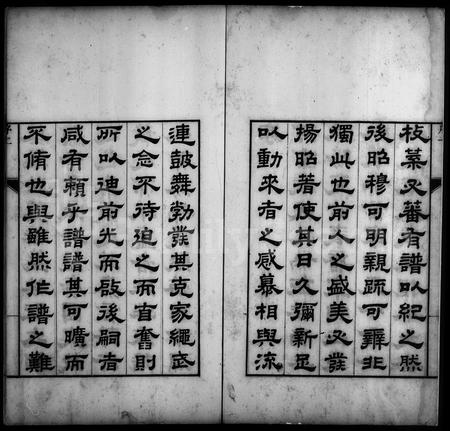 枝葉又蕃有譜以紀之然
後昭穆可明親疏可辨非
獨此也前人之盛美又發
揚昭著使其日久彌新足
以動來者之感慕相與流
連鼓舞勃發其克家繩武
之念不待迫之而自奮則
所以迪前光而啟後嗣者
咸有賴乎譜譜其可曠而
不脩也與雖然作譜之難